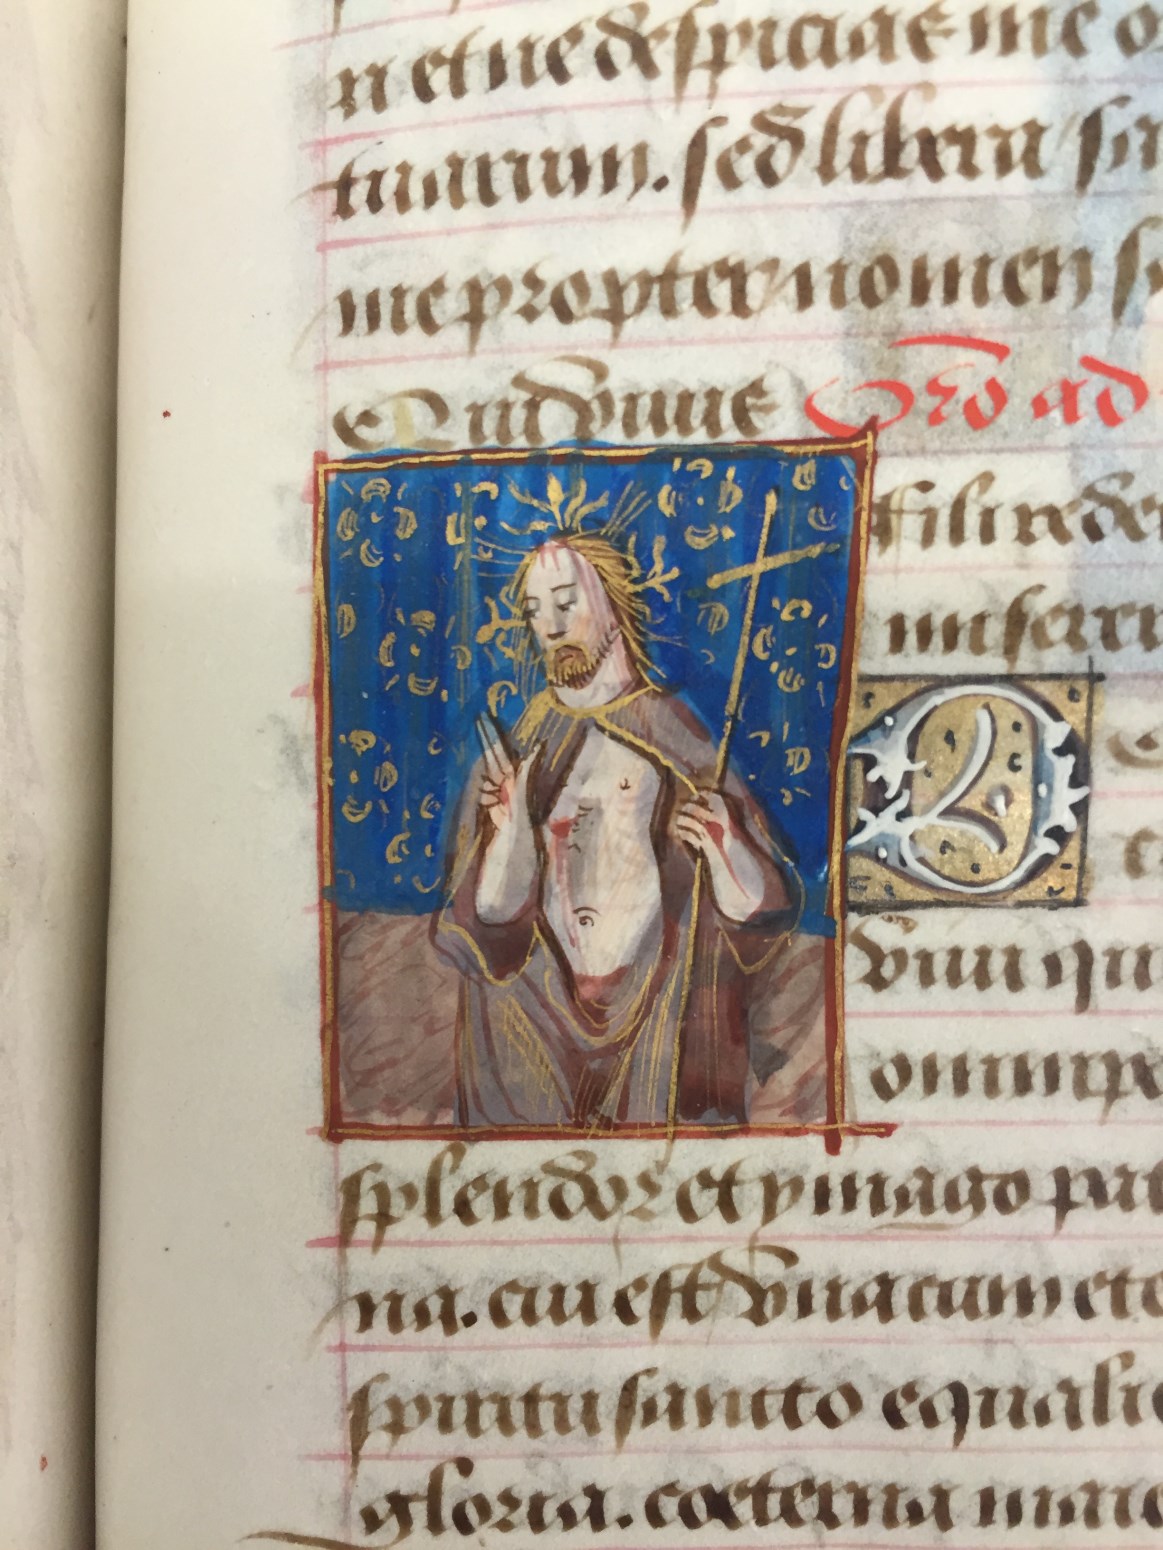 n et ne despicias me o
tuarum. sed libera
me propter nomen
Qui viuis Oro ad
fili rede
miserri
D
vnu qu
omnipo
splendor et ymago pat
na. cui est vna cum ete
spiritu sancto equali
gloria. coeterna maie